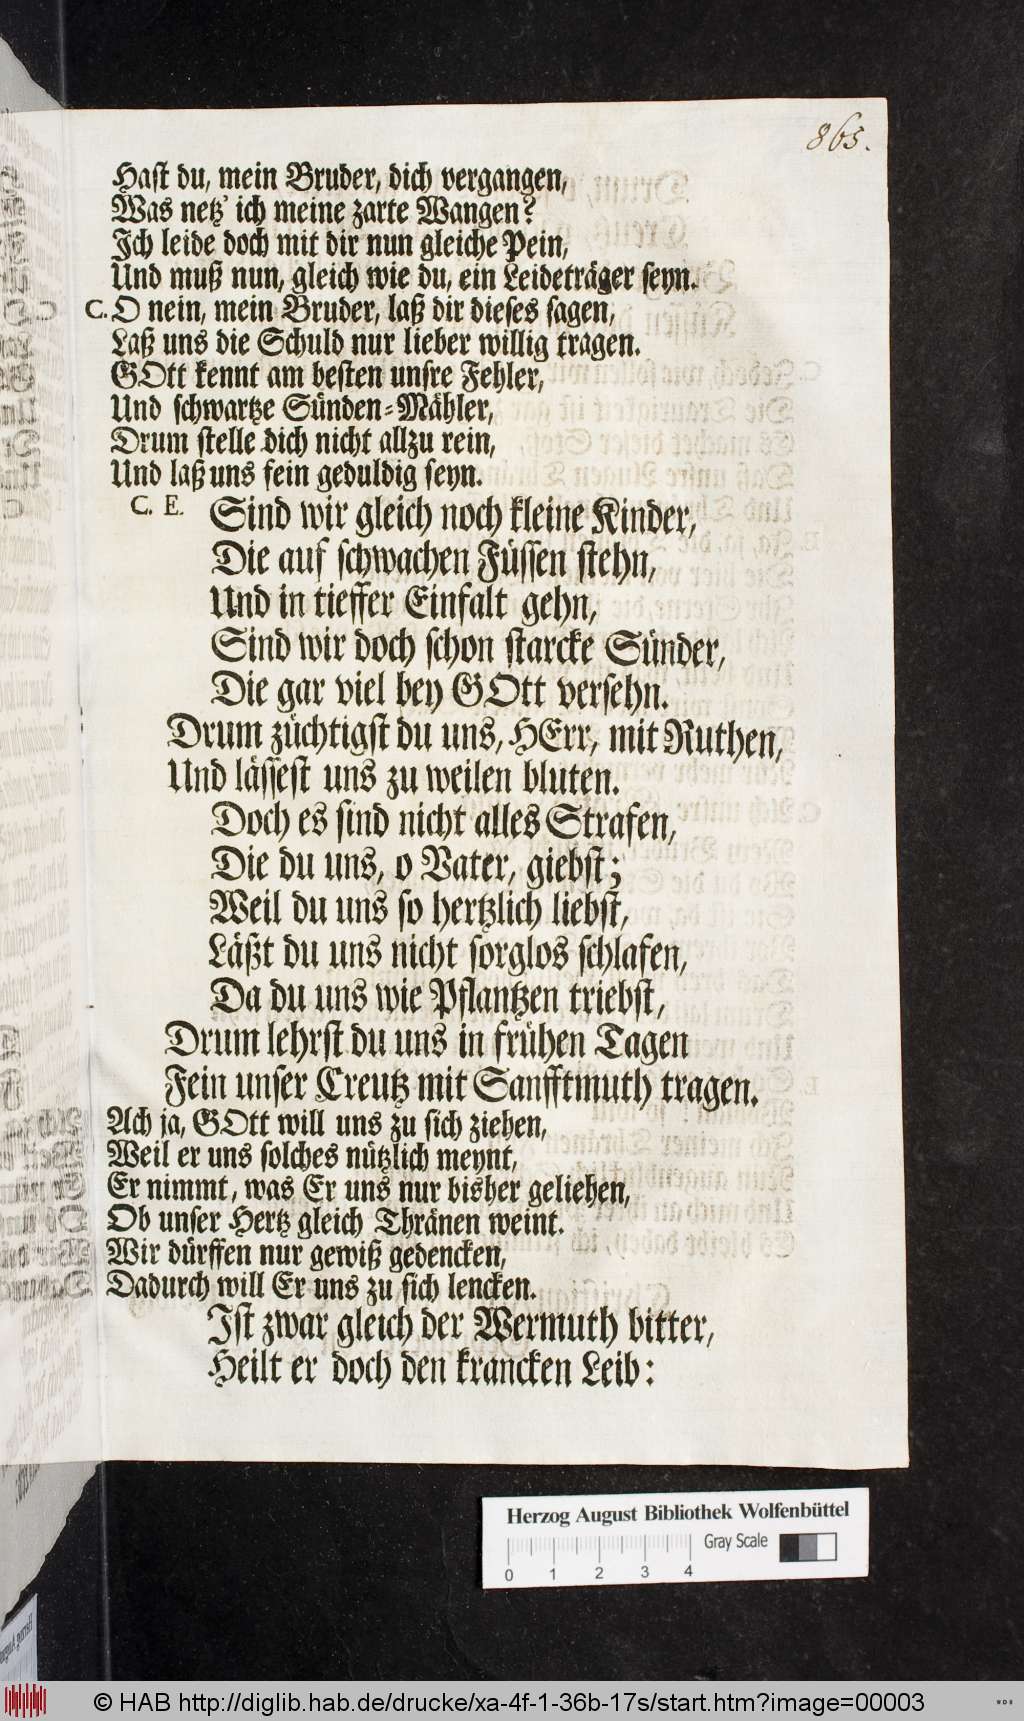 865.
Hast du, mein Bruder, dich vergangen,
Was netz' ich meine zarte Wangen?
Ich leide doch mit dir nun gleiche Pein,
Und muß nun, gleich wie du, ein Leideträger seyn.
C. O nein, mein Bruder, laß dir dieses sagen,
Laß uns die Schuld nur lieber willig tragen.
GOtt kennt am besten unsre Fehler,
Und schwartze Sünden-Mähler,
Drum stelle dich nicht allzu rein,
Und laß uns fein geduldig seyn.
C. E. Sind wir gleich noch kleine Kinder,
Die auf schwachen Füssen stehn,
Und in tieffer Einfalt gehn,
Sind wir doch schon starcke Sünder,
Die gar viel bey GOtt versehn.
Drum züchtigst du uns, HErr, mit Ruthen,
Und lässest uns zu weilen bluten.
Doch es sind nicht alles Strafen,
Die du uns, o Vater, giebst;
Weil du uns so hertzlich liebst,
Läßt du uns nicht sorglos schlafen,
Da du uns wie Pflantzen triebst,
Drum lehrst du uns in frühen Tagen
Fein unser Creutz mit Sanfftmuth tragen.
Ach ja, GOtt will uns zu sich ziehen,
Weil er uns solches nützlich meynt,
Er nimmt, was Er uns nur bisher geliehen,
Ob unser Hertz gleich Thränen weint.
Wir dürffen nur gewiß gedencken,
Dadurch will Er uns zu sich lencken.
Ist zwar gleich der Wermuth bitter,
Heilt er doch den krancken Leib:
Herzog August Bibliothek Wolfenbüttel
Gray Scale
0 1 2 3 4
© HAB http://diglib.hab.de/drucke/xa-4f-1-36b-17s/start.htm?image=00003